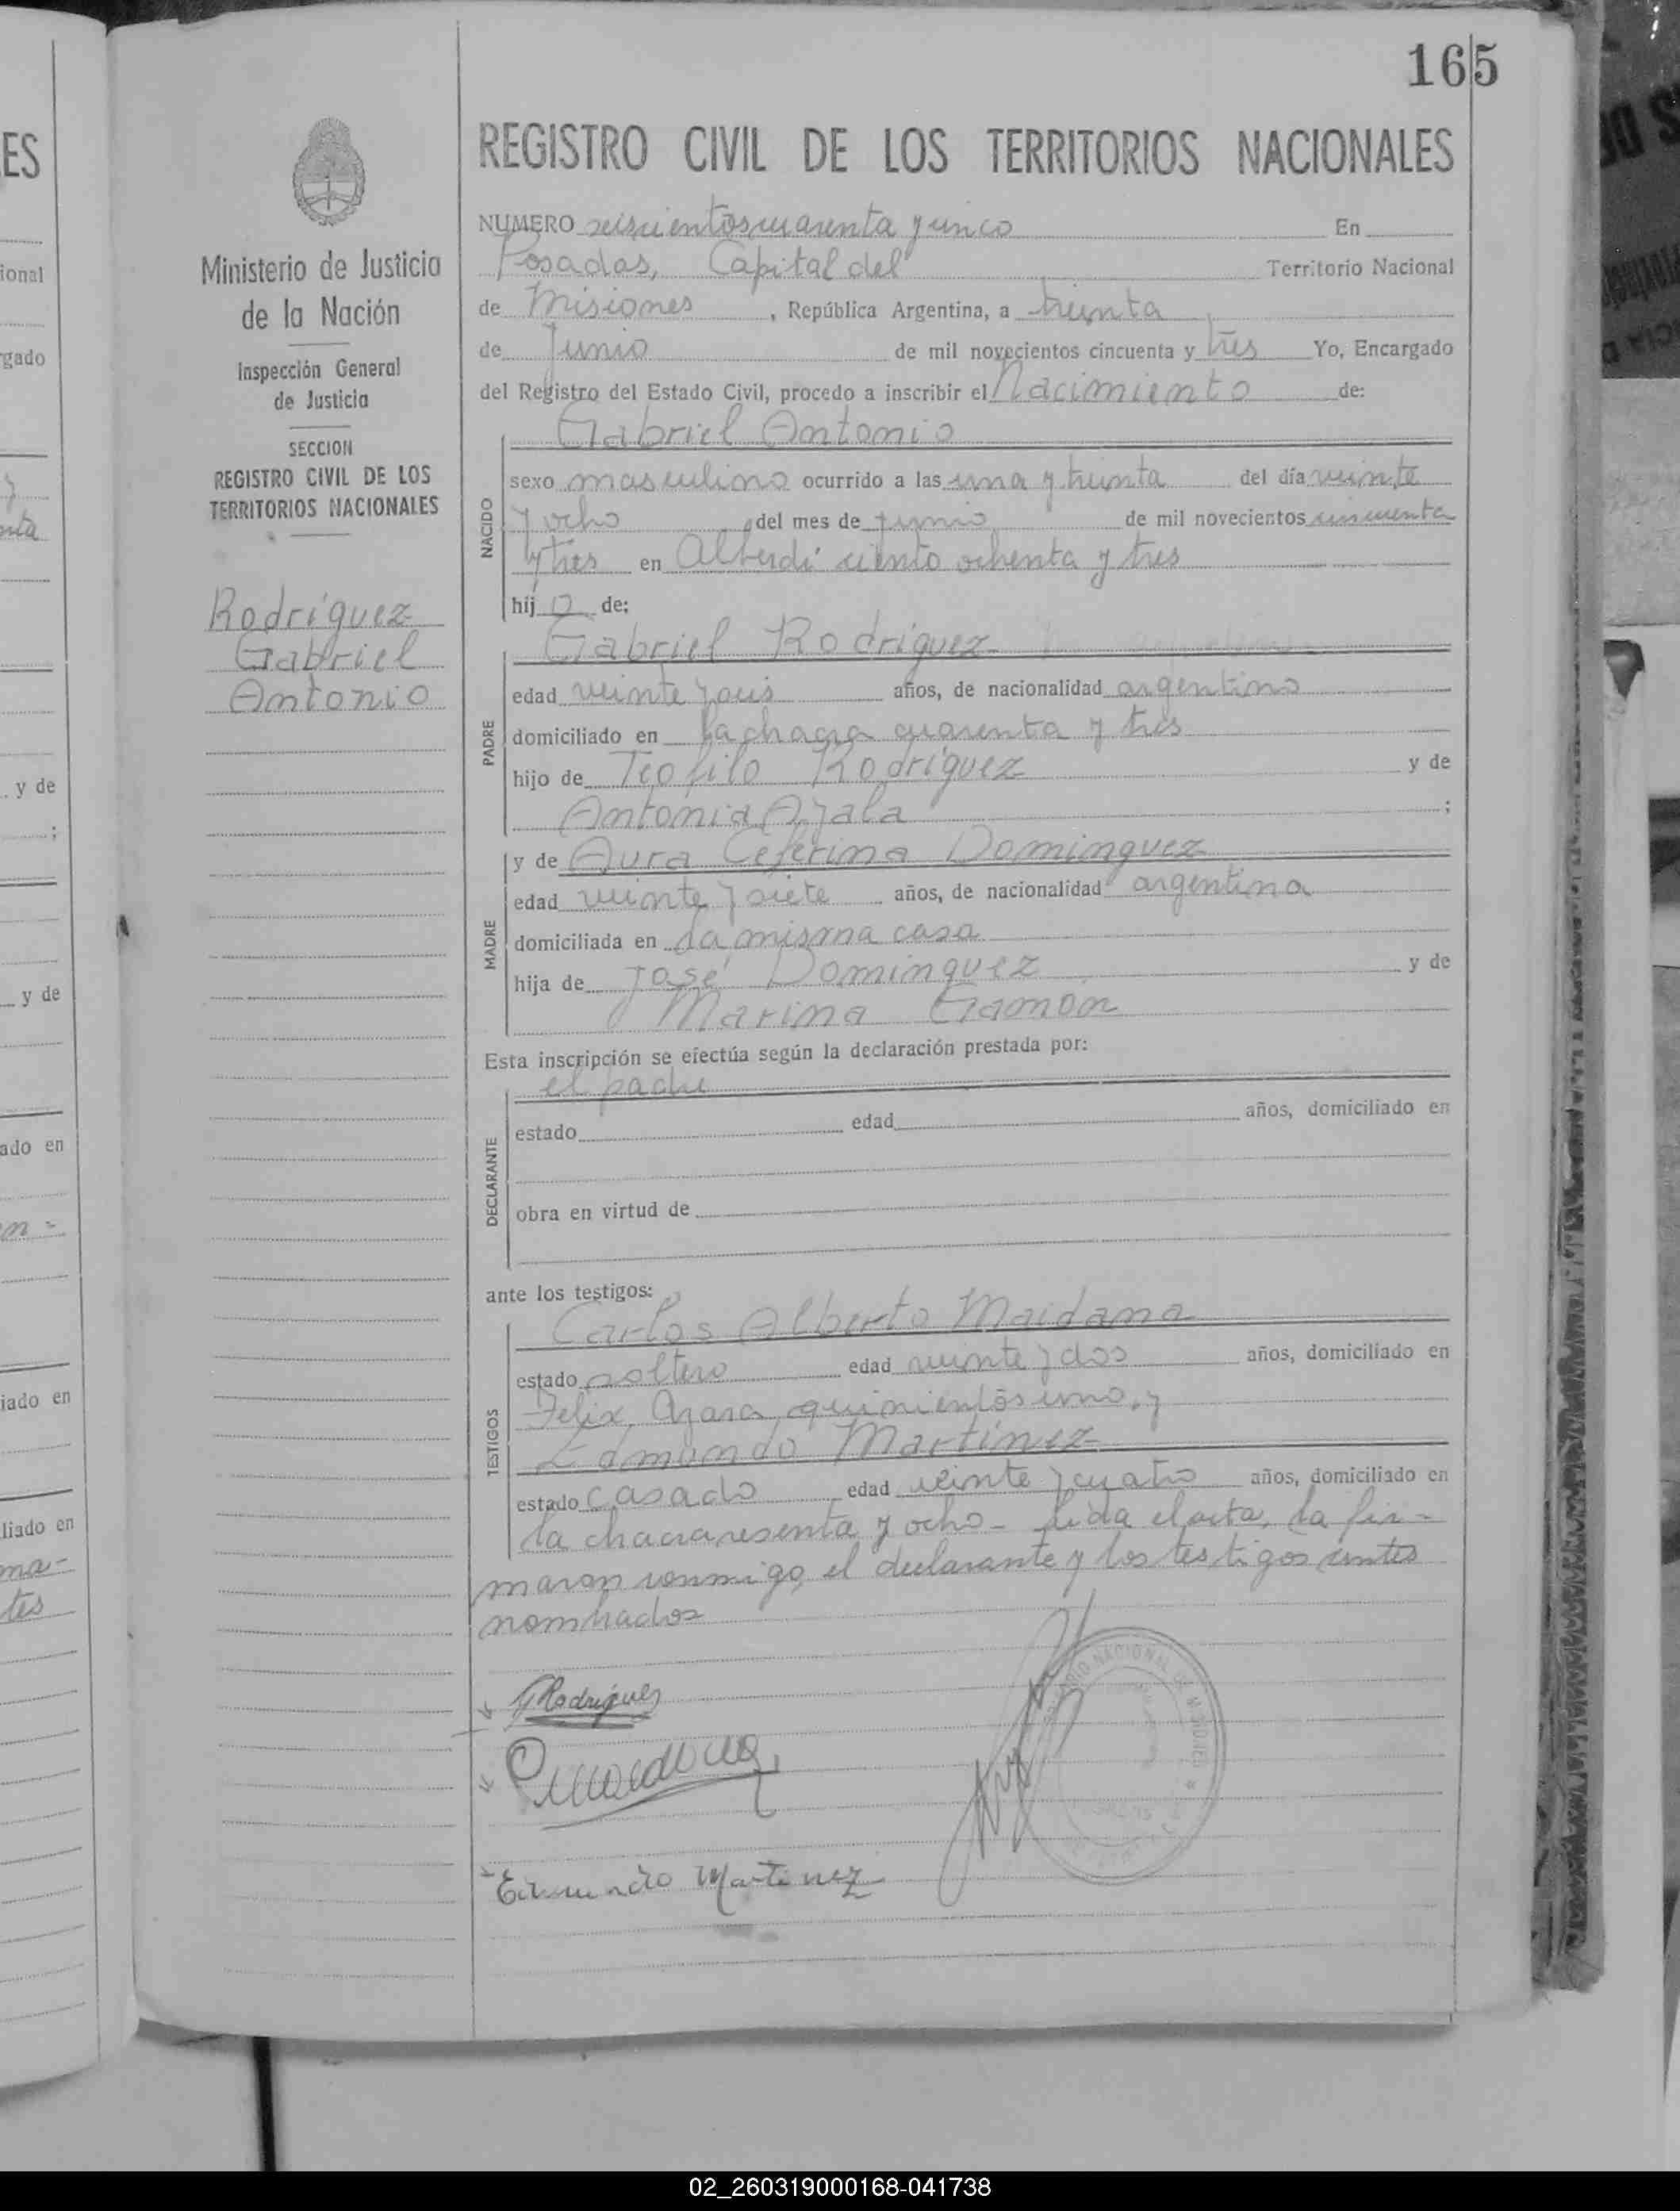 165
REGISTRO CIVIL DE LOS TERRITORIOS NACIONALES
Ministerio de Justicia
de la Nación
Inspección General
de Justicia
SECCION
REGISTRO CIVIL DE LOS
TERRITORIOS NACIONALES
Rodríguez
Gabriel
Antonio
NUMERO seiscientos cuarenta y cinco En
Posadas, Capital del Territorio Nacional
de Misiones, República Argentina, a treinta
de Junio de mil novecientos cincuenta y tres Yo, Encargado
del Registro del Estado Civil, procedo a inscribir el Nacimiento de:
Gabriel Antonio
NACIDO
sexo masculino ocurrido a las una y treinta del día veinte
y ocho del mes de junio de mil novecientos cincuenta
y tres en Alberdi ciento ochenta y tres
hij o de:
Gabriel Rodríguez
PADRE
edad veinte y seis años, de nacionalidad argentino
domiciliado en la chacra cuarenta y tres
hijo de Teofilo Rodríguez y de
Antonia Ayala ;
MADRE
y de Aura Ceferina Dominguez
edad veinte y siete años, de nacionalidad argentina
domiciliada en la misma casa
hija de José Dominguez y de
Marina Gamón
Esta inscripción se efectúa según la declaración prestada por:
el padre
DECLARANTE
estado edad años, domiciliado en
obra en virtud de
ante los testigos:
Carlos Alberto Maidana
TESTIGOS
estado soltero edad veinte y dos años, domiciliado en
Felix Azara quinientos uno, y
Edmundo Martínez
estado casado edad veinte y cuatro años, domiciliado en
la chacra sesenta y ocho - Leida el acta, la fir-
maron conmigo, el declarante y los testigos antes
nombrados
Rodríguez
Edmundo Martinez
NACIONAL DE MISIONES
ES
ional
rgado
y de
;
y de
ado en
iado en
liado en
ma-
tes
02_260319000168-041738